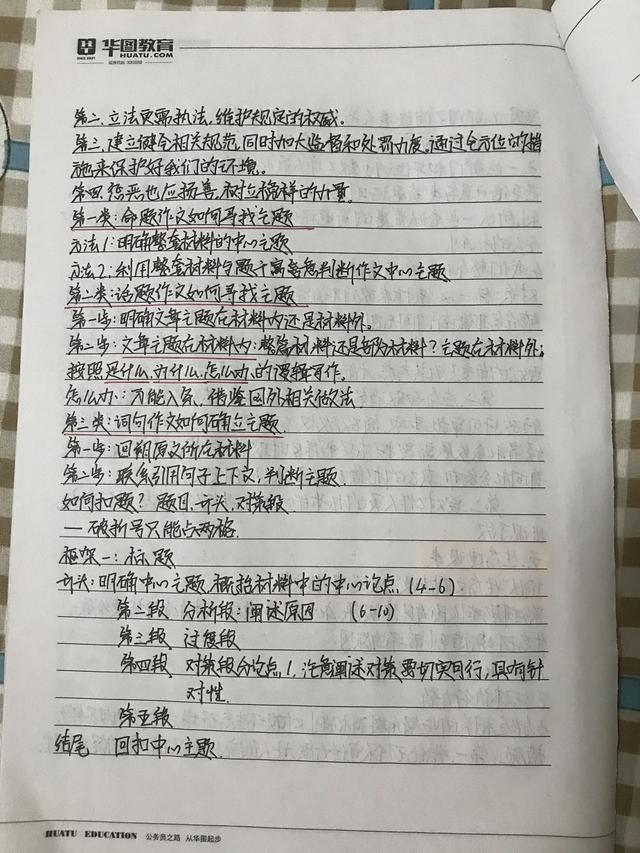 华图教育
HUATU.COM
第二、立法更需执法，维护规定的权威。
第三、建立健全相关规范，同时加大监督和处罚力度。通过全方位的措
施来保护好我们的环境。
第四、惩恶也应扬善，树立榜样的力量
第一类：命题作文如何寻找主题
方法1：明确整套材料的中心主题
方法2：利用整套材料与题干寓意息判断作文中心主题
第二类：话题作文如何寻找主题
第一步：明确文章主题在材料内还是材料外。
第二步：文章主题在材料内：整篇材料还是部分材料？主题在材料外：
按照是什么、为什么、怎么办的逻辑写作。
怎么办：万能八条、借鉴国外相关做法
第三类：词句作文如何确立主题
第一步：回朔原文所在材料
第二步：联系引用句子上下文，判断主题
如何扣题？题目、开头、对策段
——破折号只能占两格
框架一：标题
开头：明确中心主题，概括材料中的中心论点（4-6）
第二段 分析段：阐述原因 （6-10）
第三段 过度段
第四段 对策段分论点1，注意阐述对策要切实可行，具有针
对性
第五段
结尾 回扣中心主题
HUATU EDUCATION 公务员之路 从华图起步